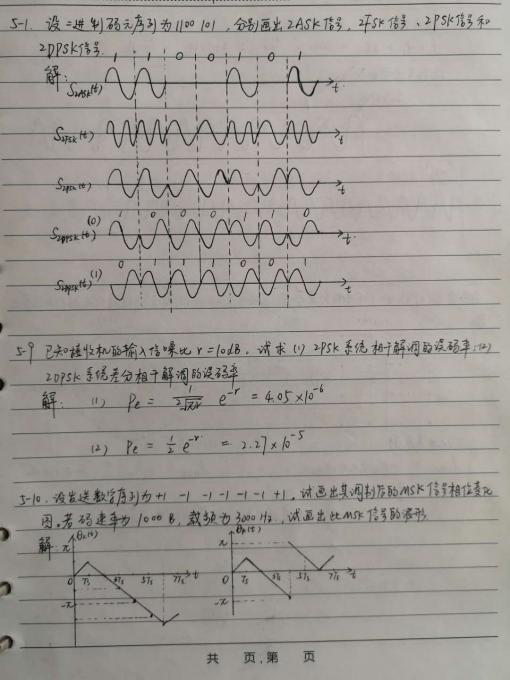 5-1. 设二进制码元序列为1100101，分别画出2ASK信号，2FSK信号、2PSK信号和
2DPSK信号.
解: 1 1 0 0 1 0 1
S2ASK(t) t
S2FSK(t) t
S2PSK(t) t
(0) 1 0 0 0 1 1 0
S2DPSK(t) t
(1) 0 1 1 1 0 0 1
S2DPSK(t) t
5-9 已知接收机的输入信噪比 r=10dB，试求 (1) 2PSK系统相干解调的误码率; (2)
2DPSK系统差分相干解调的误码率
解: (1) Pe = 1/(2√πr) e^-r = 4.05×10^-6
(2) Pe = 1/2 e^-r = 2.27×10^-5
5-10. 设发送数字序列为 +1 -1 -1 -1 -1 -1 +1。试画出其调制后的MSK信号相位变化
图。若码速率为1000B，载频为3000Hz，试画出此MSK信号的波形
解: θk(t) θk(t)
π π
0 Ts 5Ts 7Ts t 0 Ts 5Ts 7Ts t
-π -π
共 页，第 页